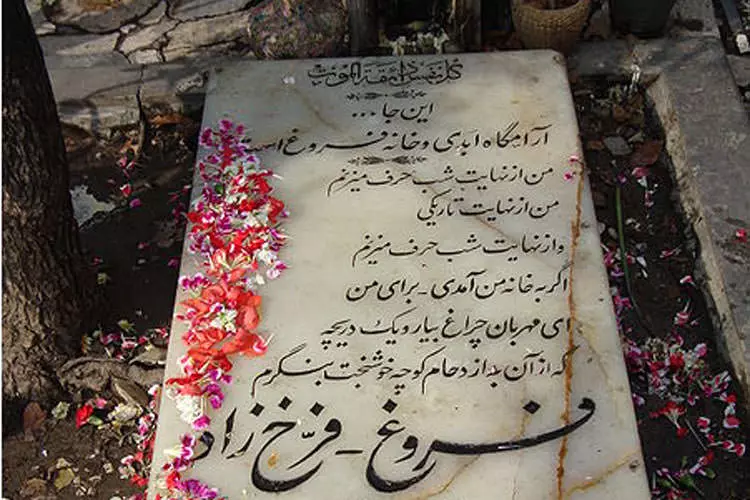 کل نفس ذائقة الموت
این جا ...
آرامگاه ابدی و خانه فروغ است
من از نهایت شب حرف میزنم
من از نهایت تاریکی
و از نهایت شب حرف میزنم
اگر به خانه من آمدی - برای من
ای مهربان چراغ بیار و یک دریچه
که از آن به ازدحام کوچه خوشبخت بنگرم
فروغ - فرّخ زاد